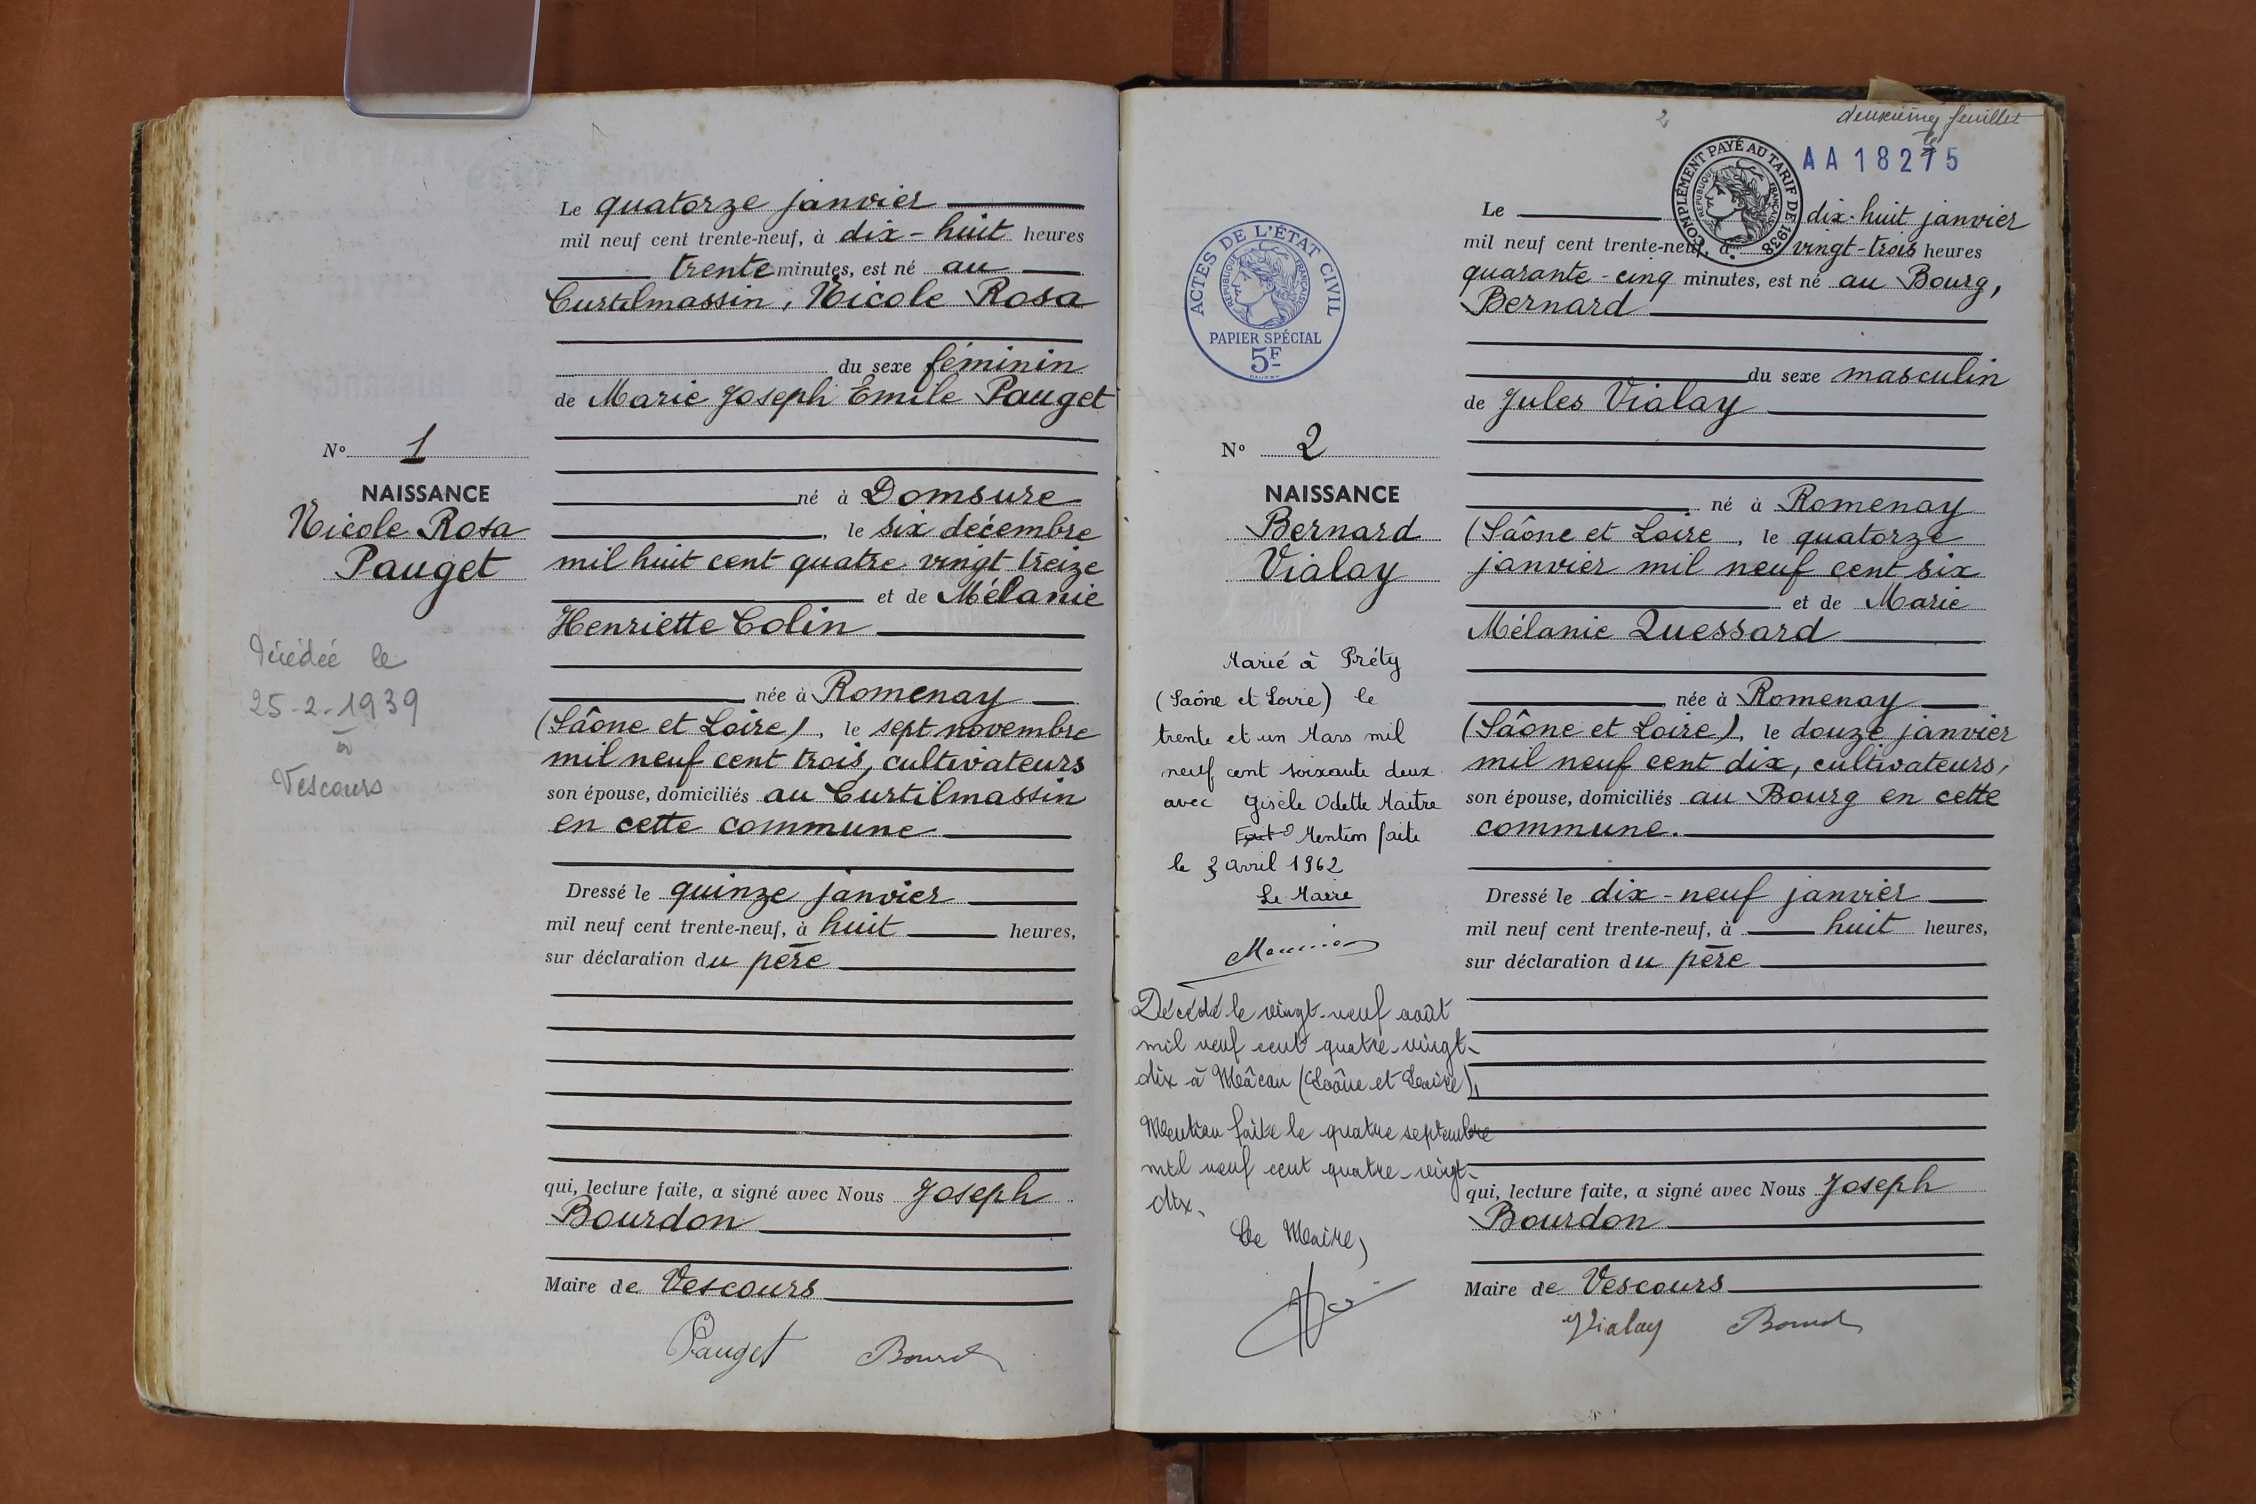 Le quatorze janvier
mil neuf cent trente-neuf, à dix-huit heures
trente minutes, est né au
Curtilmassin, Nicole Rosa
du sexe féminin
de Marie Joseph Emile Pauget
né à Domsure
, le six décembre
mil huit cent quatre vingt treize
et de Mélanie
Henriette Colin
née à Romenay
(Saône et Loire), le sept novembre
mil neuf cent trois, cultivateurs
son épouse, domiciliés au Curtilmassin
en cette commune
Dressé le quinze janvier
mil neuf cent trente-neuf, à huit heures,
sur déclaration du père
qui, lecture faite, a signé avec Nous Joseph
Bourdon
Maire de Vescours
Pauget Bourd
No 1
NAISSANCE
Nicole Rosa
Pauget
Décédée le
25-2-1939
à
Vescours
2
deuxième feuillet
AA 18275
COMPLÉMENT PAYÉ AU TARIF DE 1938
RÉPUBLIQUE FRANÇAISE
Le dix-huit janvier
mil neuf cent trente-neuf, à vingt-trois heures
quarante-cinq minutes, est né au Bourg,
Bernard
du sexe masculin
de Jules Vialay
né à Romenay
(Saône et Loire, le quatorze
janvier mil neuf cent six
et de Marie
Mélanie Quessard
née à Romenay
(Saône et Loire), le douze janvier
mil neuf cent dix, cultivateurs,
son épouse, domiciliés au Bourg en cette
commune.
Dressé le dix-neuf janvier
mil neuf cent trente-neuf, à huit heures,
sur déclaration du père
qui, lecture faite, a signé avec Nous Joseph
Bourdon
Maire de Vescours
Vialay Bourd
ACTES DE L'ÉTAT CIVIL
RÉPUBLIQUE FRANÇAISE
PAPIER SPÉCIAL
5F
No 2
NAISSANCE
Bernard
Vialay
Marié à Préty
(Saône et Loire) le
trente et un Mars mil
neuf cent soixante deux
avec Gisèle Odette Maitre
Mention faite
le 3 Avril 1962
Le Maire
Meunier
Décédé le vingt-neuf août
mil neuf cent quatre-vingt-
dix à Mâcon (Saône et Loire),
Mention faite le quatre septembre
mil neuf cent quatre-vingt-
dix.
Le Maire,